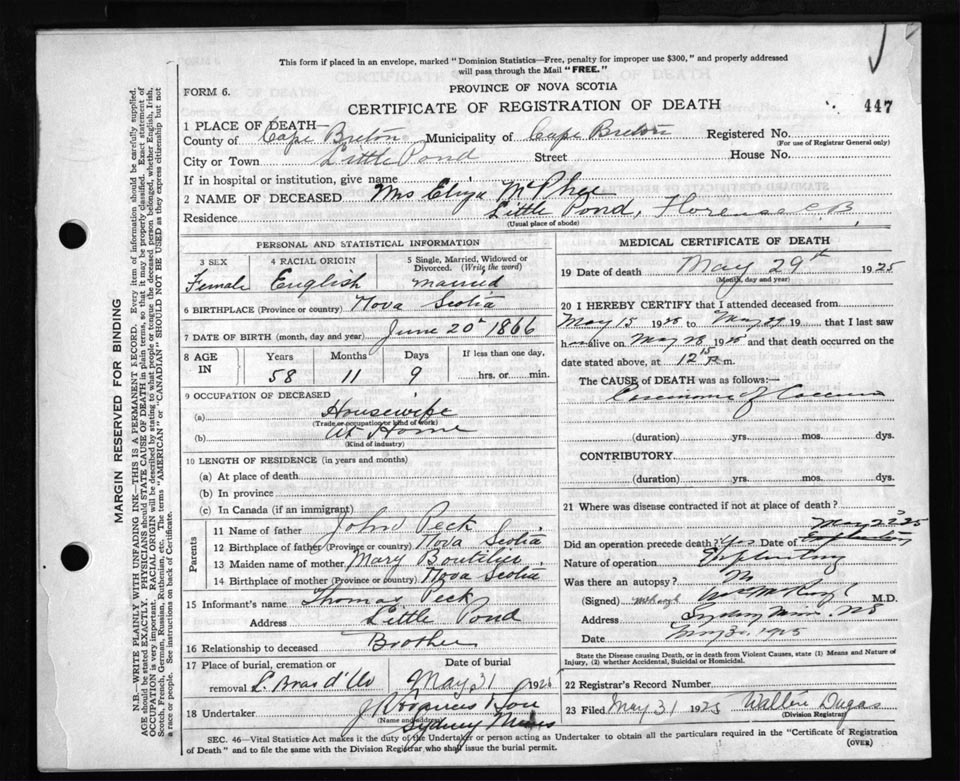 This form if placed in an envelope, marked "Dominion Statistics—Free, penalty for improper use $300," and properly addressed
will pass through the Mail "FREE."
FORM 6.
PROVINCE OF NOVA SCOTIA
CERTIFICATE OF REGISTRATION OF DEATH
447
1 PLACE OF DEATH—
County of Cape Breton Municipality of Cape Breton Registered No.
(For use of Registrar General only)
City or Town Little Pond Street House No.
If in hospital or institution, give name
2 NAME OF DECEASED Mrs Eliza McPhee
Residence Little Pond, Florence C.B.
(Usual place of abode)
PERSONAL AND STATISTICAL INFORMATION
3 SEX
Female
4 RACIAL ORIGIN
English
5 Single, Married, Widowed or
Divorced. (Write the word)
married
6 BIRTHPLACE (Province or country) Nova Scotia
7 DATE OF BIRTH (month, day and year) June 20 1866
8 AGE
IN
Years Months Days If less than one day,
58 11 9 hrs. or min.
9 OCCUPATION OF DECEASED
(a) Housewife
(Trade occupation or kind of work)
(b) At Home
(Kind of industry)
10 LENGTH OF RESIDENCE (in years and months)
(a) At place of death
(b) In province
(c) In Canada (if an immigrant)
Parents
11 Name of father John Peck
12 Birthplace of father (Province or country) Nova Scotia
13 Maiden name of mother Mary Boutilier
14 Birthplace of mother (Province or country) Nova Scotia
15 Informant's name Thomas Peck
Address Little Pond
16 Relationship to deceased Brother
17 Place of burial, cremation or
removal L. Bras d'Or
Date of burial
May 31 192
18 Undertaker
(Name and address)
Sydney Mines
MEDICAL CERTIFICATE OF DEATH
19 Date of death May 29th 1925
(Month, day and year)
20 I HEREBY CERTIFY that I attended deceased from
May 15 1925 to May 29 19 that I last saw
h alive on May 28 1925 and that death occurred on the
date stated above, at 12 m.
The CAUSE of DEATH was as follows:—
Carcinoma of Caecum
(duration) yrs. mos. dys.
CONTRIBUTORY
(duration) yrs. mos. dys.
21 Where was disease contracted if not at place of death?
May 25
Did an operation precede death? Yes Date of
Nature of operation Exploratory
Was there an autopsy? No
(Signed) M.D.
Address Sydney Mines NS
Date May 30 1925
State the Disease causing Death, or in death from Violent Causes, state (1) Means and Nature of
Injury, (2) whether Accidental, Suicidal or Homicidal.
22 Registrar's Record Number
23 Filed May 31 1925 Dugas
(Division Registrar)
SEC. 46—Vital Statistics Act makes it the duty of the Undertaker or person acting as Undertaker to obtain all the particulars required in the "Certificate of Registration
of Death" and to file the same with the Division Registrar who shall issue the burial permit.
(OVER)
MARGIN RESERVED FOR BINDING
N.B.—WRITE PLAINLY WITH UNFADING INK—THIS IS A PERMANENT RECORD. Every item of information should be carefully supplied.
AGE should be stated EXACTLY. PHYSICIANS should STATE CAUSE OF DEATH in plain terms, so that it may be properly classified. Exact statement of
OCCUPATION is very important. RACIAL ORIGIN will be described by stating to what people or tongue the deceased person belonged, whether English, Irish,
Scotch, French, German, Russian, Ruthenian, etc. The terms "AMERICAN" or "CANADIAN" SHOULD NOT BE USED as they express citizenship but not
a race or people. See instructions on back of Certificate.